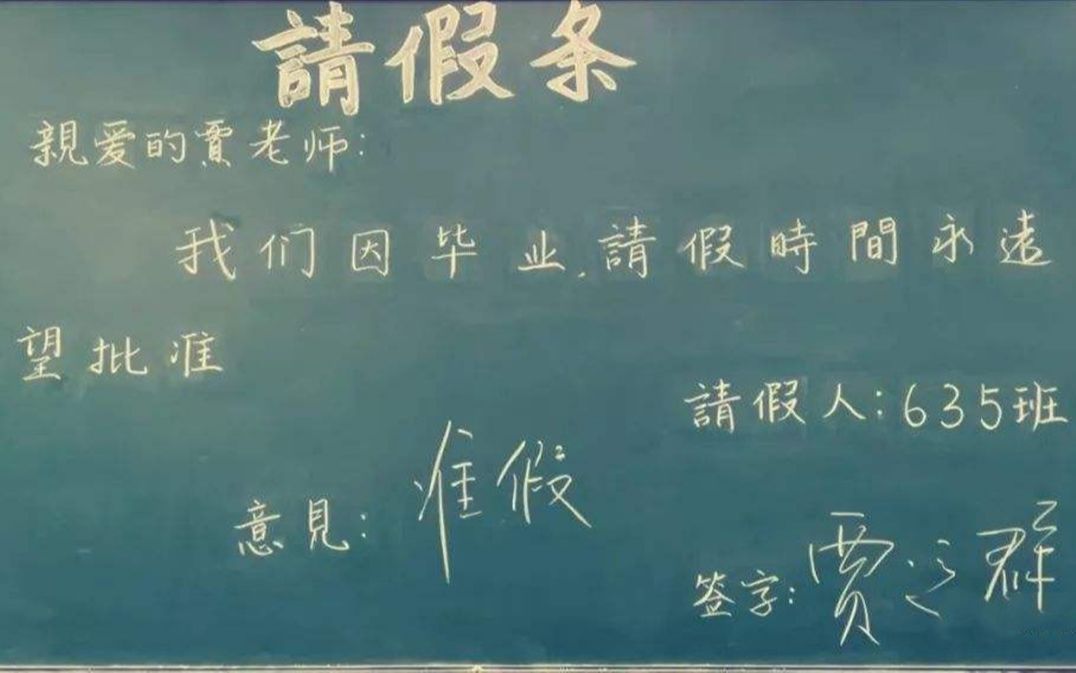 請假条
親爱的賈老师:
我们因毕业,請假時間永遠
望批准
請假人:635班
意見:准假
签字:賈之群